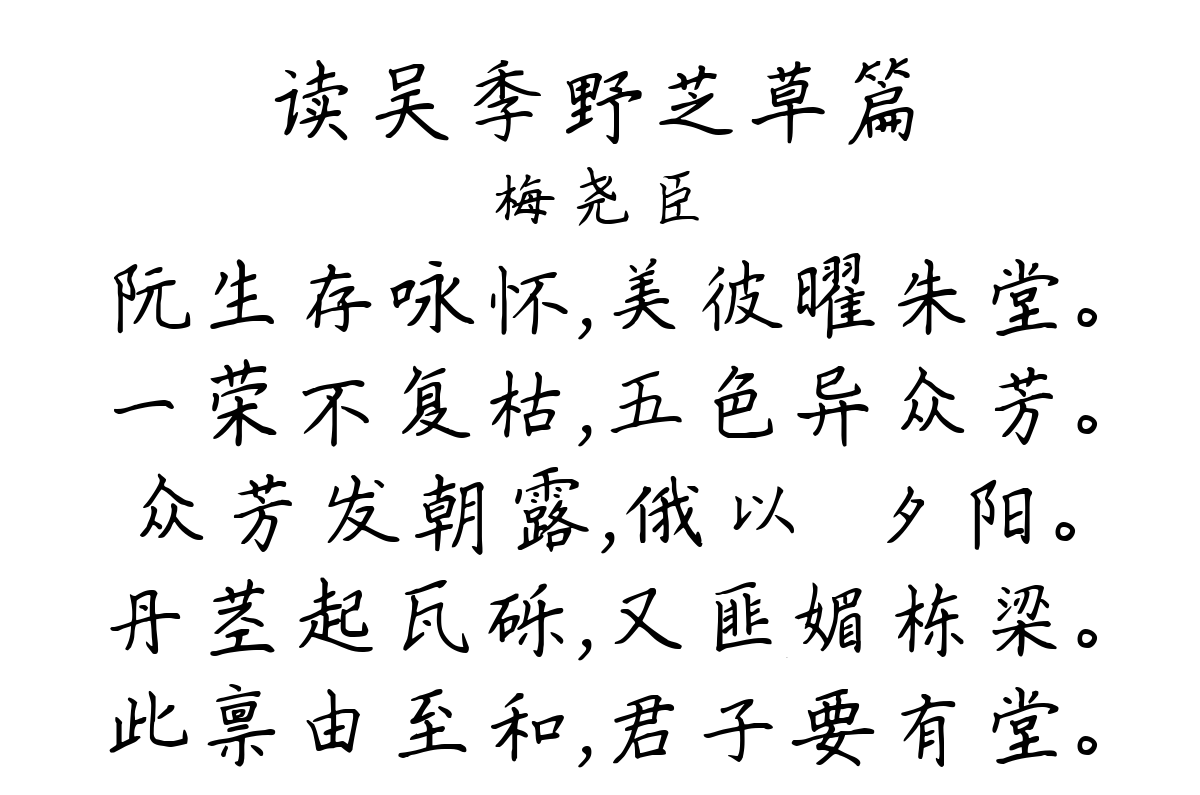 读吴季野芝草篇
梅尧臣
阮生存咏怀,美彼曜朱堂。
一荣不复枯,五色异众芳。
众芳发朝露,俄以 夕阳。
丹茎起瓦砾,又匪媚栋梁。
此禀由至和,君子要有堂。